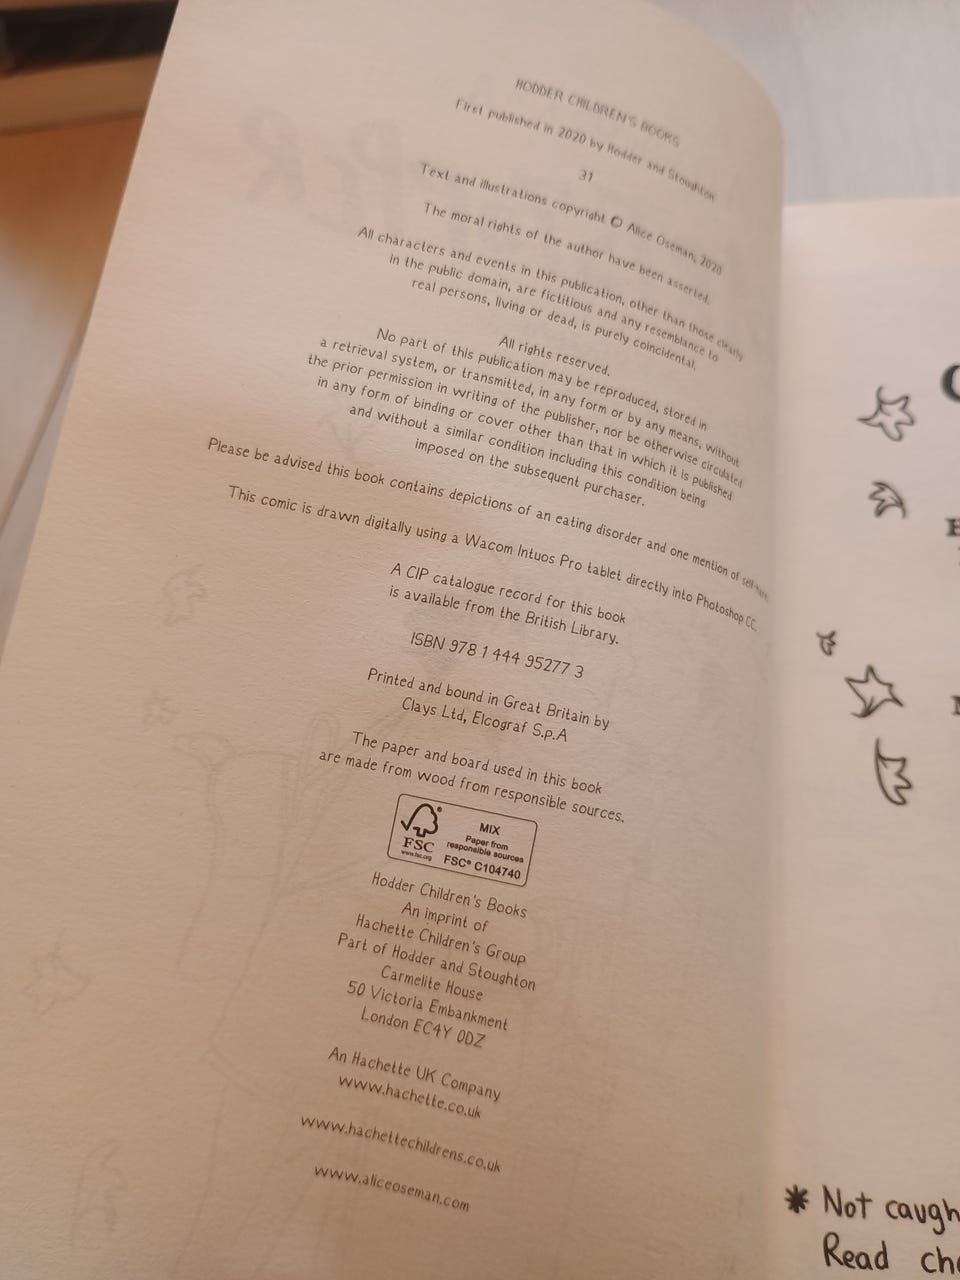 HODDER CHILDREN'S BOOKS
First published in 2020 by Hodder and Stoughton
31
Text and illustrations copyright © Alice Oseman, 2020
The moral rights of the author have been asserted.
All characters and events in this publication, other than those clearly
in the public domain, are fictitious and any resemblance to
real persons, living or dead, is purely coincidental.
All rights reserved.
No part of this publication may be reproduced, stored in
a retrieval system, or transmitted, in any form or by any means, without
the prior permission in writing of the publisher, nor be otherwise circulated
in any form of binding or cover other than that in which it is published
and without a similar condition including this condition being
imposed on the subsequent purchaser.
Please be advised this book contains depictions of an eating disorder and one mention of self-harm.
This comic is drawn digitally using a Wacom Intuos Pro tablet directly into Photoshop CC.
A CIP catalogue record for this book
is available from the British Library.
ISBN 978 1 444 95277 3
Printed and bound in Great Britain by
Clays Ltd, Elcograf S.p.A
The paper and board used in this book
are made from wood from responsible sources.
FSC
www.fsc.org
MIX
Paper from
responsible sources
FSC® C104740
Hodder Children's Books
An imprint of
Hachette Children's Group
Part of Hodder and Stoughton
Carmelite House
50 Victoria Embankment
London EC4Y 0DZ
An Hachette UK Company
www.hachette.co.uk
www.hachettechildrens.co.uk
www.aliceoseman.com
* Not caugh
Read